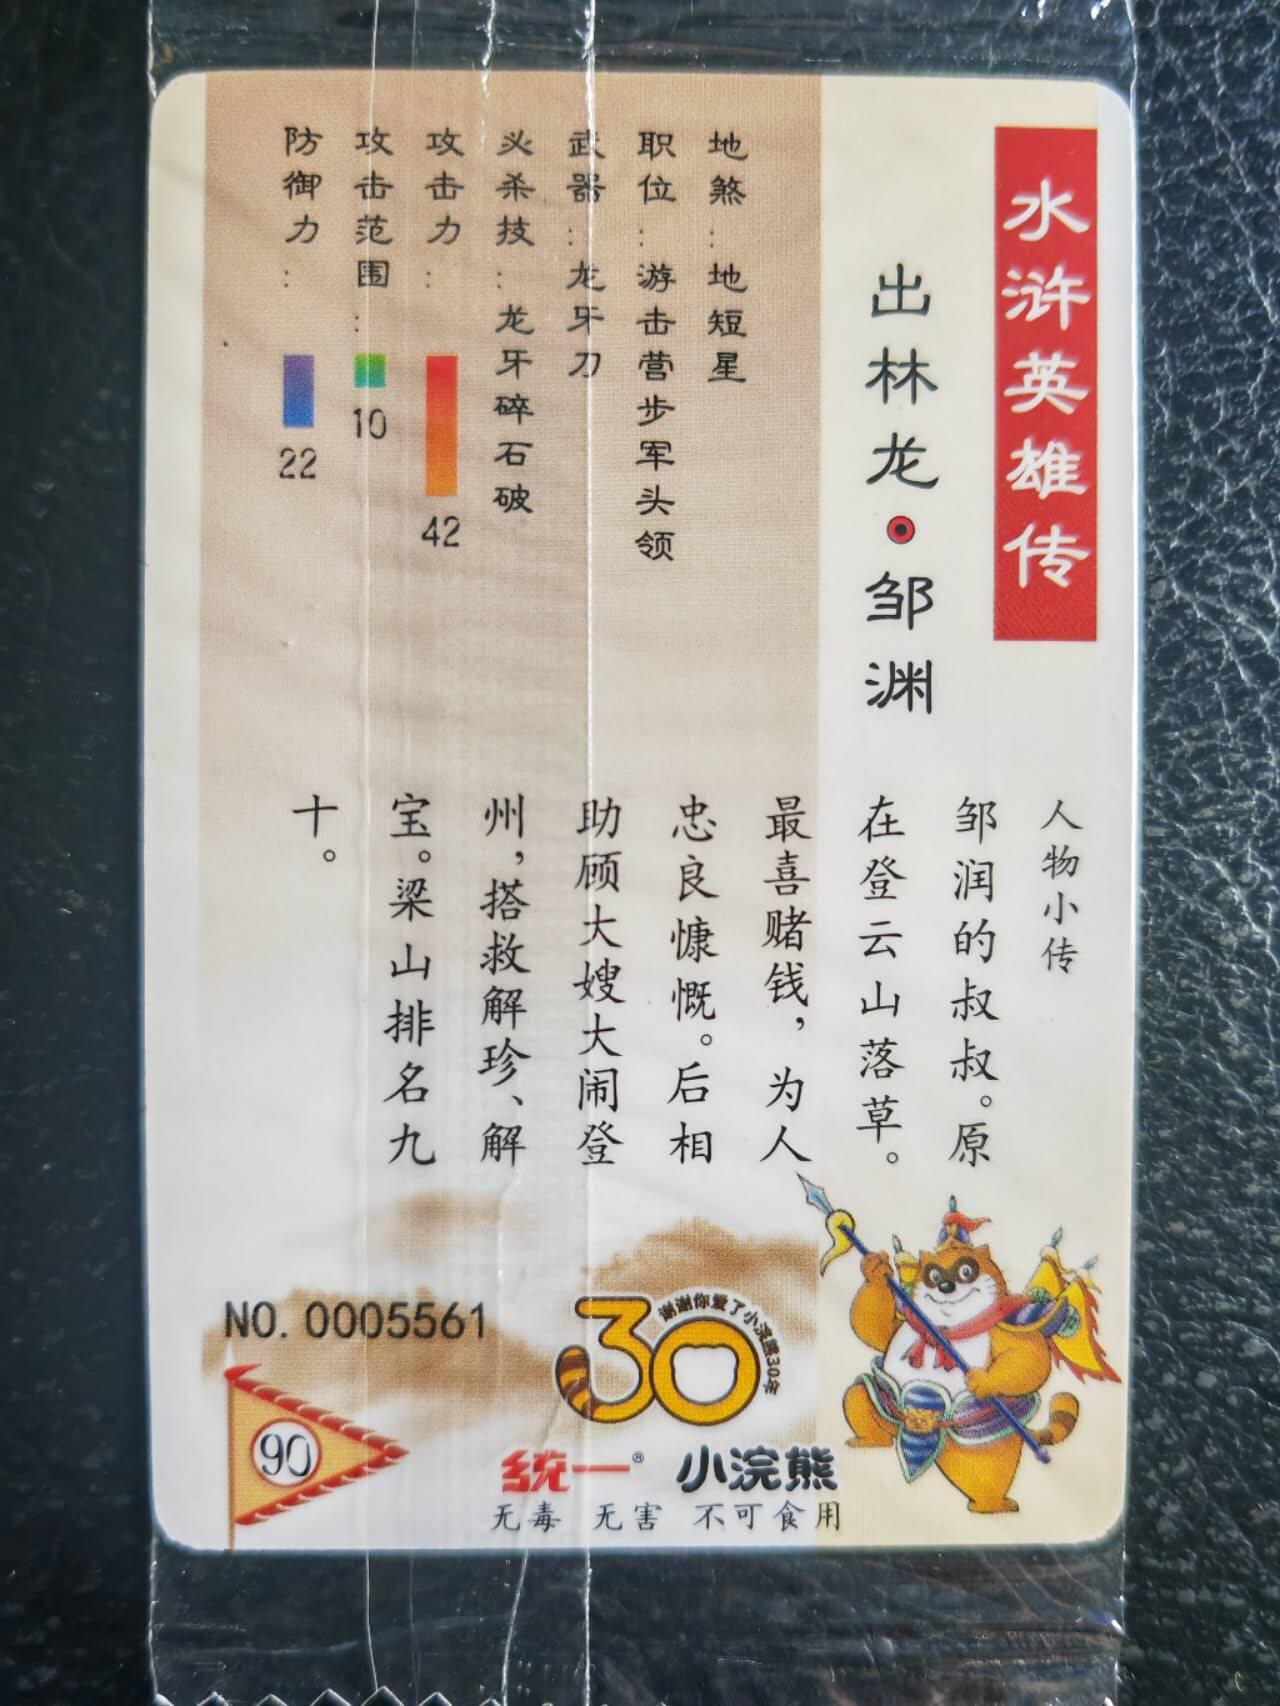 水浒英雄传
出林龙·邹渊
地煞:地短星
职位:游击营步军头领
武器:龙牙刀
必杀技:龙牙碎石破
攻击力:
42
攻击范围:
10
防御力:
22
人物小传
邹润的叔叔。原
在登云山落草。
最喜赌钱,为人
忠良慷慨。后相
助顾大嫂大闹登
州,搭救解珍、解
宝。梁山排名九
十。
NO.0005561
30
谢谢你爱了小浣熊30年
90
统一® 小浣熊
无毒 无害 不可食用